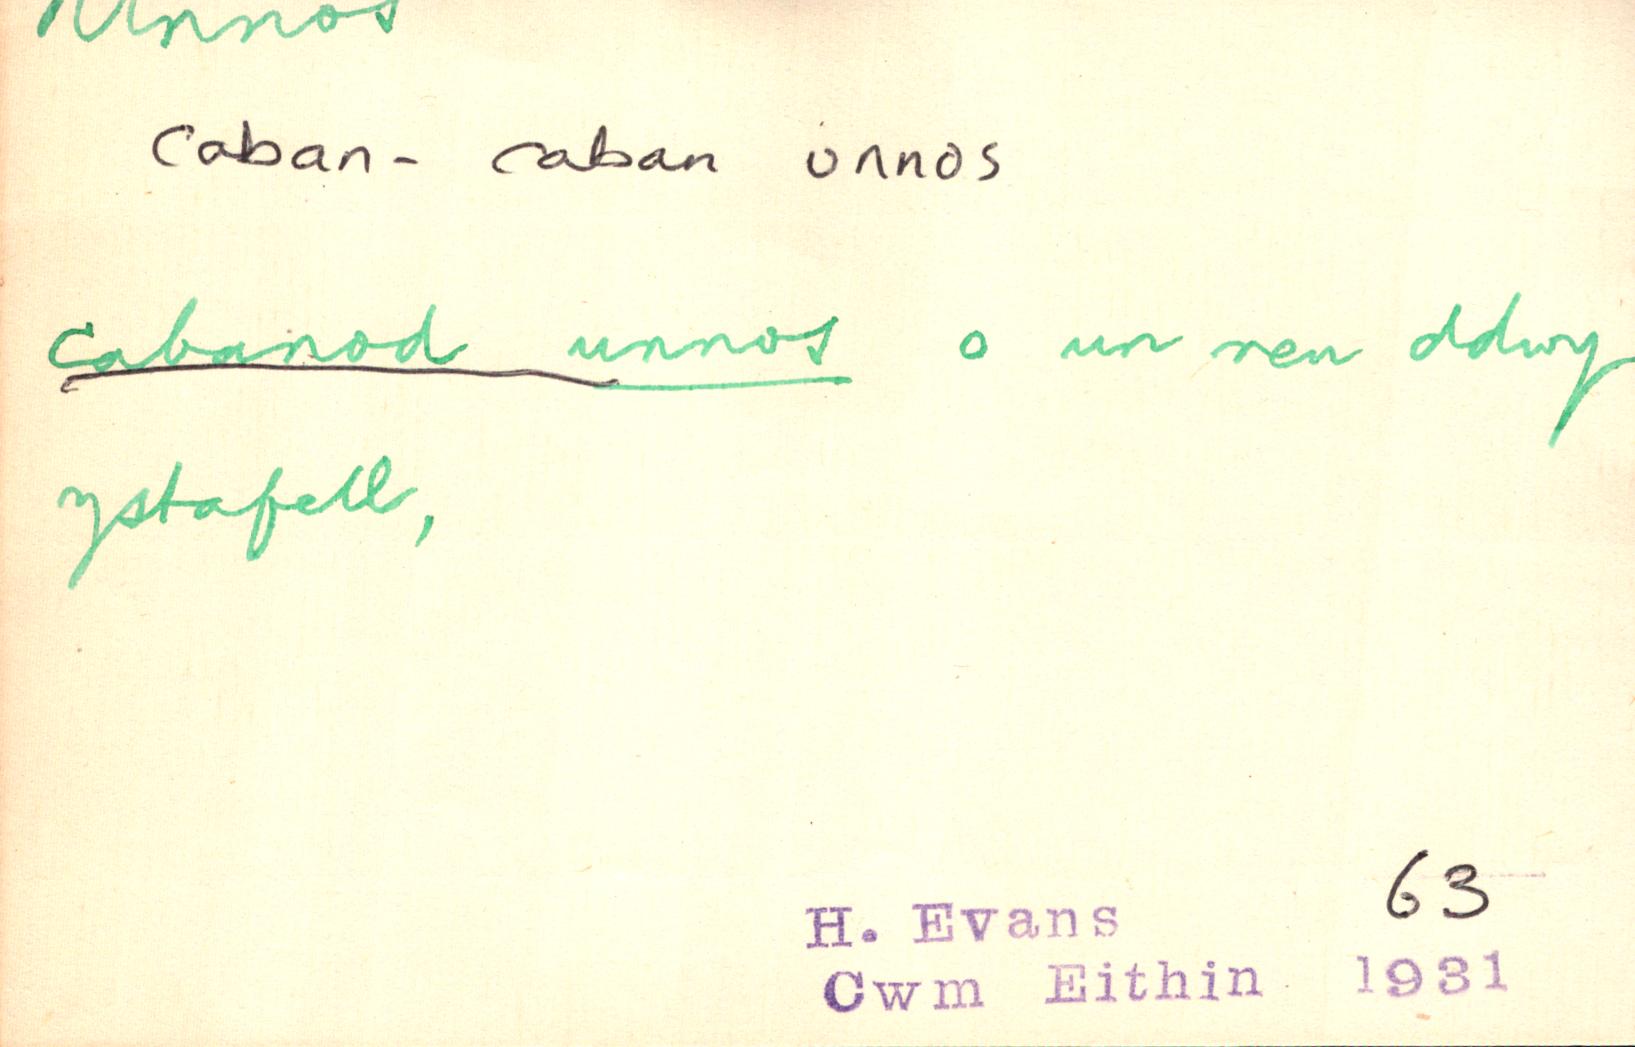 Unnos
Caban - caban unnos
cabanod unnos o un neu ddwy
ystafell,
63
H. Evans
Cwm Eithin 1931